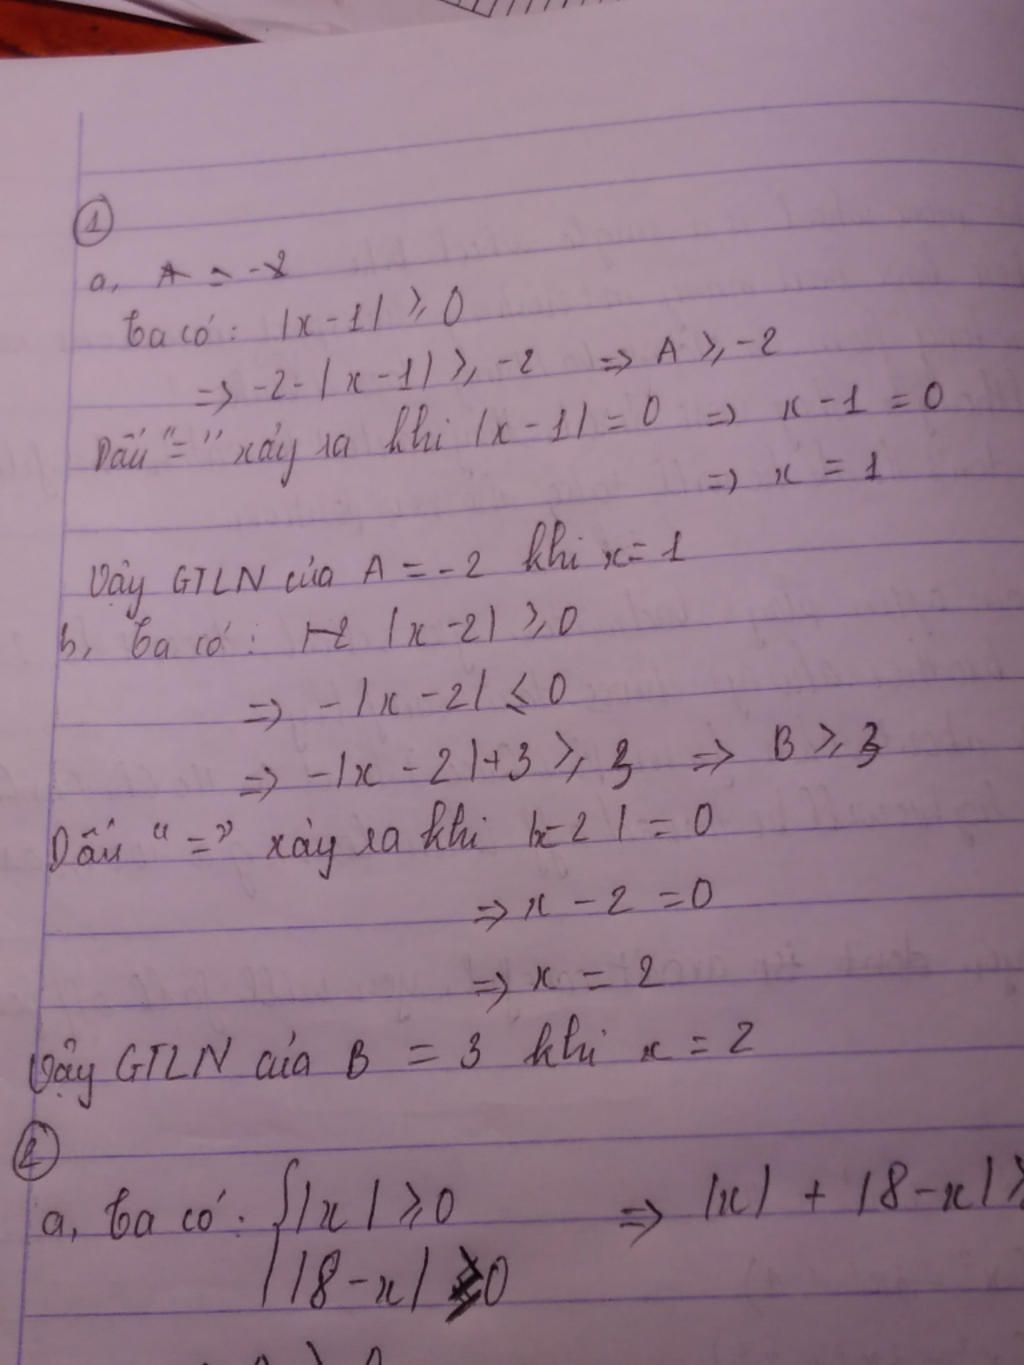 1
a, A = -2
Ta có: |x-1| ≥ 0
=> -2-|x-1| ≥ -2 => A ≥ -2
Dấu "=" xảy ra khi |x-1| = 0 => x-1 = 0
=> x = 1
Vậy GTLN của A = -2 khi x = 1
b, Ta có: |x-2| ≥ 0
=> -|x-2| ≤ 0
=> -|x-2|+3 ≥ 3 => B ≥ 3
Dấu "=" xảy ra khi |x-2| = 0
=> x - 2 = 0
=> x = 2
Vậy GTLN của B = 3 khi x = 2
2
a, Ta có: { |x| ≥ 0 => |x| + |8-x| ≥
|8-x| ≥ 0